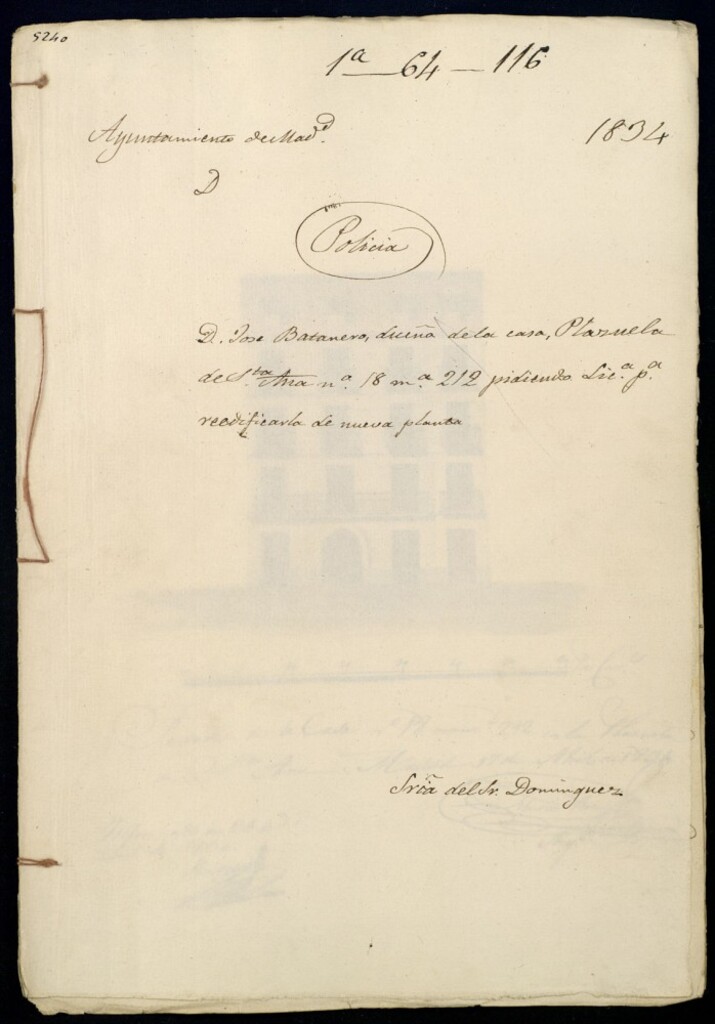 5240
1ª — 64 — 116
Ayuntamiento de Mad.d
1834
D
Policia
D. Jose Batanero, dueño de la casa, Plazuela
de S.ta Ana n.º 18 m.ª 212 pidiendo Lic.ª p.ª
reedificarla de nueva planta
Srīa del Sr. Dominguez